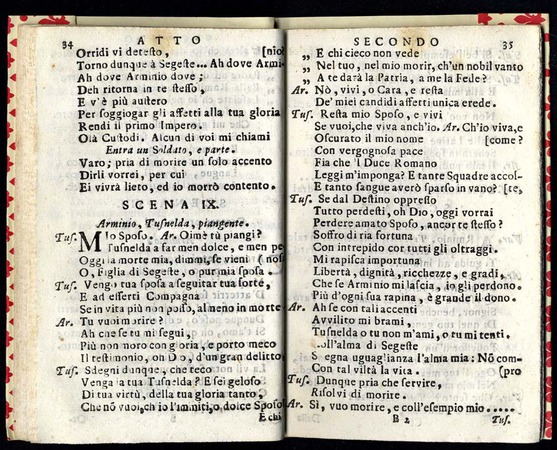 34 ATTO
Orridi vi detesto, [nio!
Torno dunque à Segeste... Ah dove Armi-
Ah dove Arminio dove;
Deh ritorna in te stesso,
E v'è più austero
Per soggiogar gli affetti alla tua gloria
Rendi il primo Impero.
Olà Custodi. Alcun di voi mi chiami
Entra un Soldato, e parte.
Varo; pria di morire un solo accento
Dirli vorrei, per cui
Ei vivrà lieto, ed io morrò contento.
SCENA IX.
Arminio, Tusnelda, piangente.
Tus. Mlo Sposo. Ar. Oimè tù piangi?
Tusnelda a far men dolce, e men pe
Oggi la morte mia, dimmi, se vieni (nos
O, Figlia di Segeste, o pur mia sposa.
Tus. Vengo tua sposa a seguitar tua sorte,
E ad esserti Compagna
Se in vita più non posso, almeno in morte
Ar. Tu vuoi morire?
Ah che se tu mi segui,
Più non moro con gloria, e porto meco
Il testimonio, oh Dio, d'un gran delitto
Tus. Sdegni dunque, che teco
Venga la tua Tusnelda? E sei geloso
Di tua virtù, della tua gloria tanto,
Che nõ vuoi, ch io l'immiti, o dolce Sposo
E chi
SECONDO 35
„ E chi cieco non vede
„ Nel tuo, nel mio morir, ch'un nobil vanto
„ A te darà la Patria, a me la Fede?
Ar. Nò, vivi, o Cara, e resta
De' miei candidi affetti unica erede.
Tus. Resta mio Sposo, e vivi
Se vuoi, che viva anch'io. Ar. Ch'io viva, e
Oscurato il mio nome [come?
Con vergognosa pace
Fia che 'l Duce Romano
Leggi m'imponga? E tante Squadre accol-
E tanto sangue averò sparso in vano? [te,
Tus. Se dal Destino oppresso
Tutto perdesti, oh Dio, oggi vorrai
Perdere amato Sposo, ancor te stesso?
Soffro di ria fortuna
Con intrepido cor tutti gli oltraggi.
Mi rapisca importuna
Libertà, dignità, ricchezze, e gradi,
Che se Arminio mi lascia, io gli perdono.
Più d'ogni sua rapina, è grande il dono.
Ar. Ah se con tali accenti
Avvilito mi brami,
Tusnelda o tu non m'ami, o tu mi tenti.
coll'alma di Segeste
S egna uguaglianza l'alma mia: Nõ com-
Con tal viltà la vita. (pro
Tus. Dunque pria che servire,
Risolvi di morire.
Ar. Sì, vuo morire, e coll'esempio mio.....
B 2 Tus.